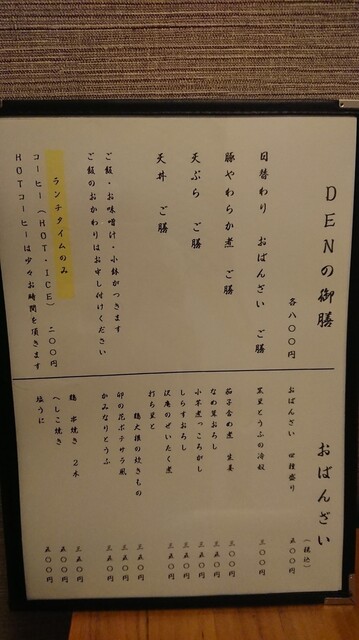 DENの御膳
各八〇〇円
日替わり おばんざい ご膳
豚やわらか煮 ご膳
天ぷら ご膳
天丼 ご膳
ご飯・お味噌汁・小鉢がつきます
ご飯のおかわりはお申し付けください
ランチタイムのみ
コーヒー(HOT・ICE) 二〇〇円
HOTコーヒーは少々お時間を頂きます
おばんざい
(税込)
おばんざい 四種盛り 五〇〇円
黒豆とうふの冷奴 三〇〇円
茄子含め煮 生姜 三〇〇円
なめ茸おろし 三五〇円
小芋煮っころがし 三五〇円
しらすおろし 三五〇円
沢庵のぜいたく煮 三五〇円
打ち豆と
鶏大根の炊きもの 三五〇円
卯の花ポテサラ風 三五〇円
かみなりとうふ 三五〇円
鶏 串焼き 2本 五〇〇円
へしこ焼き 五〇〇円
塩うに 五〇〇円